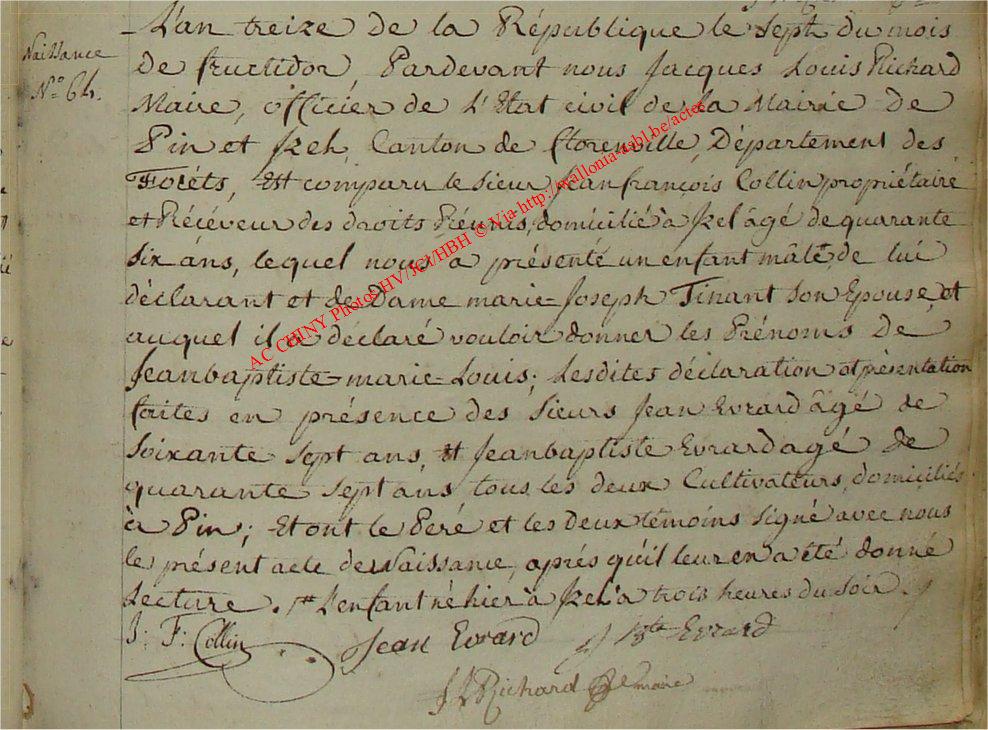 Naissance
N.° 64.
L'an treize de la République le sept du mois
de fructidor, Pardevant nous Jacques Louis Richard
Maire, officier de L'Etat civil de la Mairie de
Pin et Izel, Canton de florenville, Département des
Forêts, Est comparu le sieur Jean françois Collin propriétaire
et Récéveur des droits Réunis, domicilié à Izel âgé de quarante
six ans, lequel nous a présenté un enfant mâle de lui
déclarant et de Dame marie-Joseph Tinant son Epouse, et
auquel il a déclaré vouloir donner les Prénoms de
Jeanbaptiste-marie-Louis; Lesdites déclaration et présentation
faites en présence des Sieurs Jean Evrard âgé de
soixante sept ans, et Jeanbaptiste Evrard agé de
quarante sept ans tous les deux Cultivateurs, domiciliés
à Pin; Et ont le Peré et les deux témoins signé avec nous
le présent acte de Naissance, aprés qu'il leur en a été donné
Lecture. L'enfant né hier à Izel à trois heures du soir.
J: F: Collin Jean Evrard J Bte Evrard
J L Richard maire
AC CHINY Photos HV/JCt/HBH © Via http://mallonia-aabl.be/actes